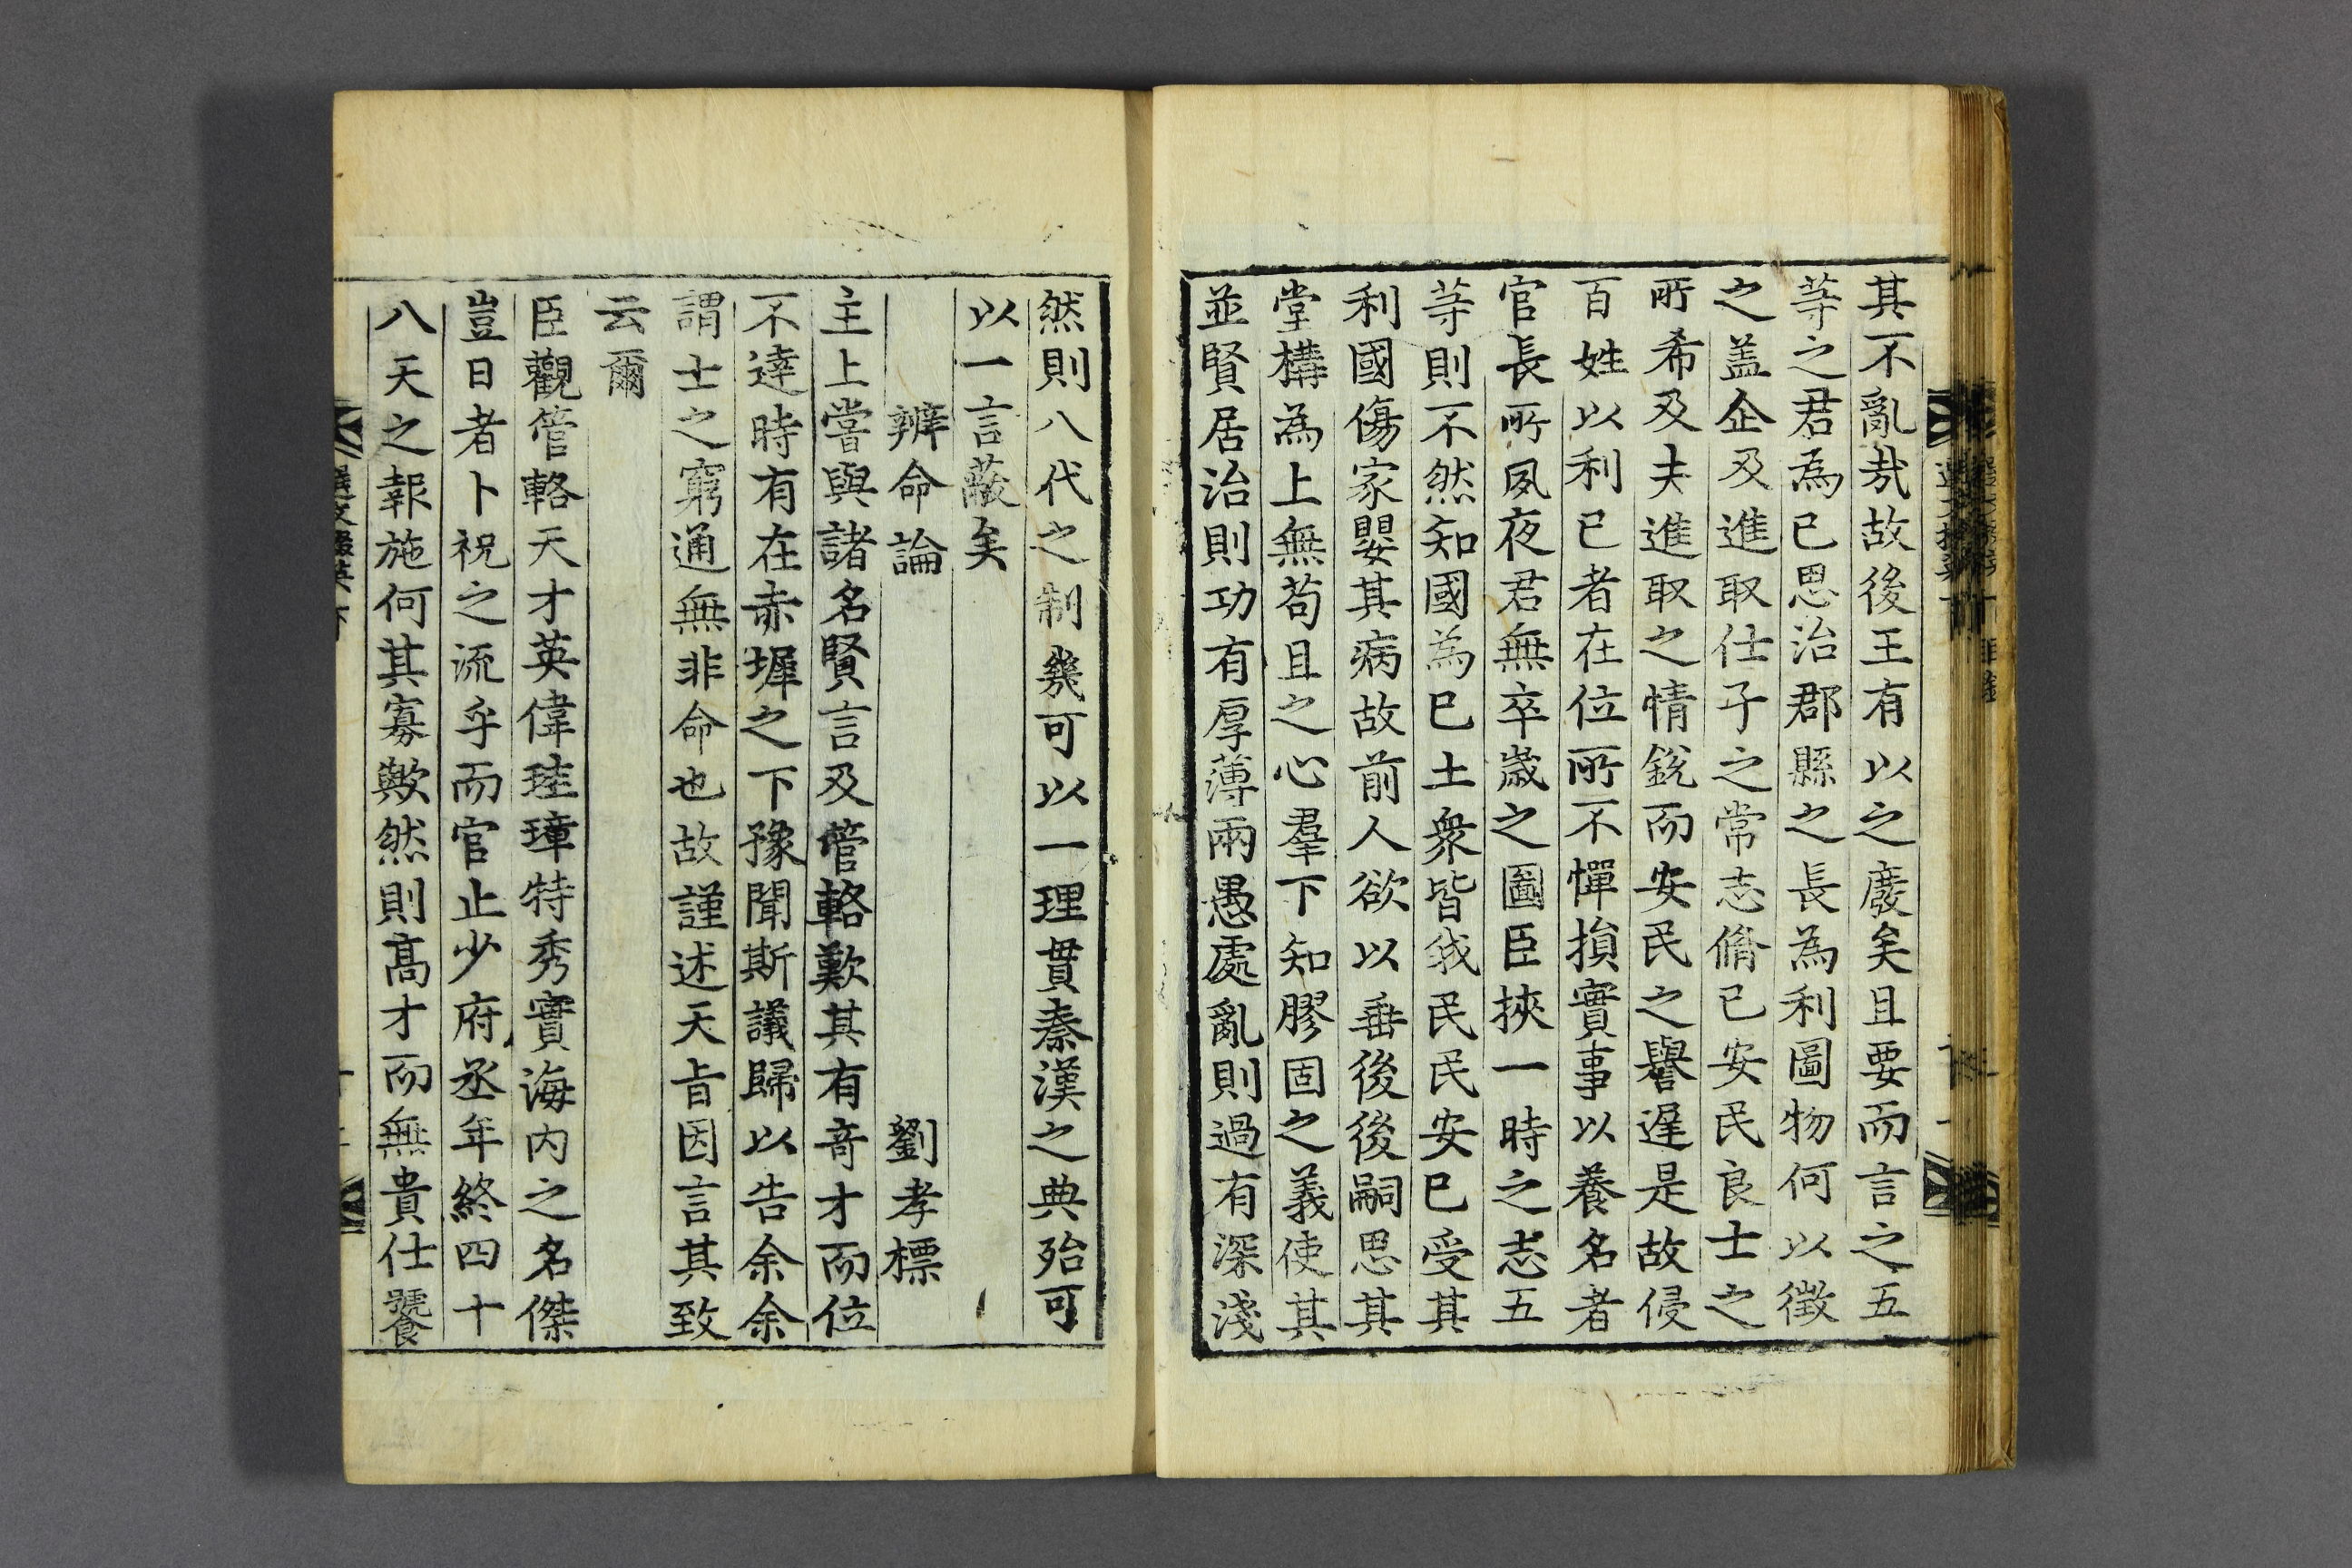 其不亂哉故後王有以之廢矣且要而言之五
等之君為已思治郡縣之長為利圖物何以徵
之盖企及進取仕子之常志脩已安民良士之
所希及夫進取之情銳而安民之譽遅是故侵
百姓以利已者在位所不憚損實事以養名者
官長所夙夜君無卒歲之圖臣挾一時之志五
等則不然知國為已土衆皆我民民安已受其
利國傷家嬰其病故前人欲以垂後後嗣思其
堂構為上無苟且之心羣下知膠固之義使其
並賢居治則功有厚薄兩愚處亂則過有深淺
然則八代之制幾可以一理貫秦漢之典殆可
以一言蔽矣
辨命論 劉孝標
主上嘗與諸名賢言及管輅歎其有奇才而位
不達時有在赤墀之下豫聞斯議歸以告余余
謂士之窮通無非命也故謹述天旨因言其致
云爾
臣觀管輅天才英偉珪璋特秀實海內之名傑
豈日者卜祝之流乎而官止少府丞年終四十
八天之報施何其寡歟然則高才而無貴仕饕
選文掇英下